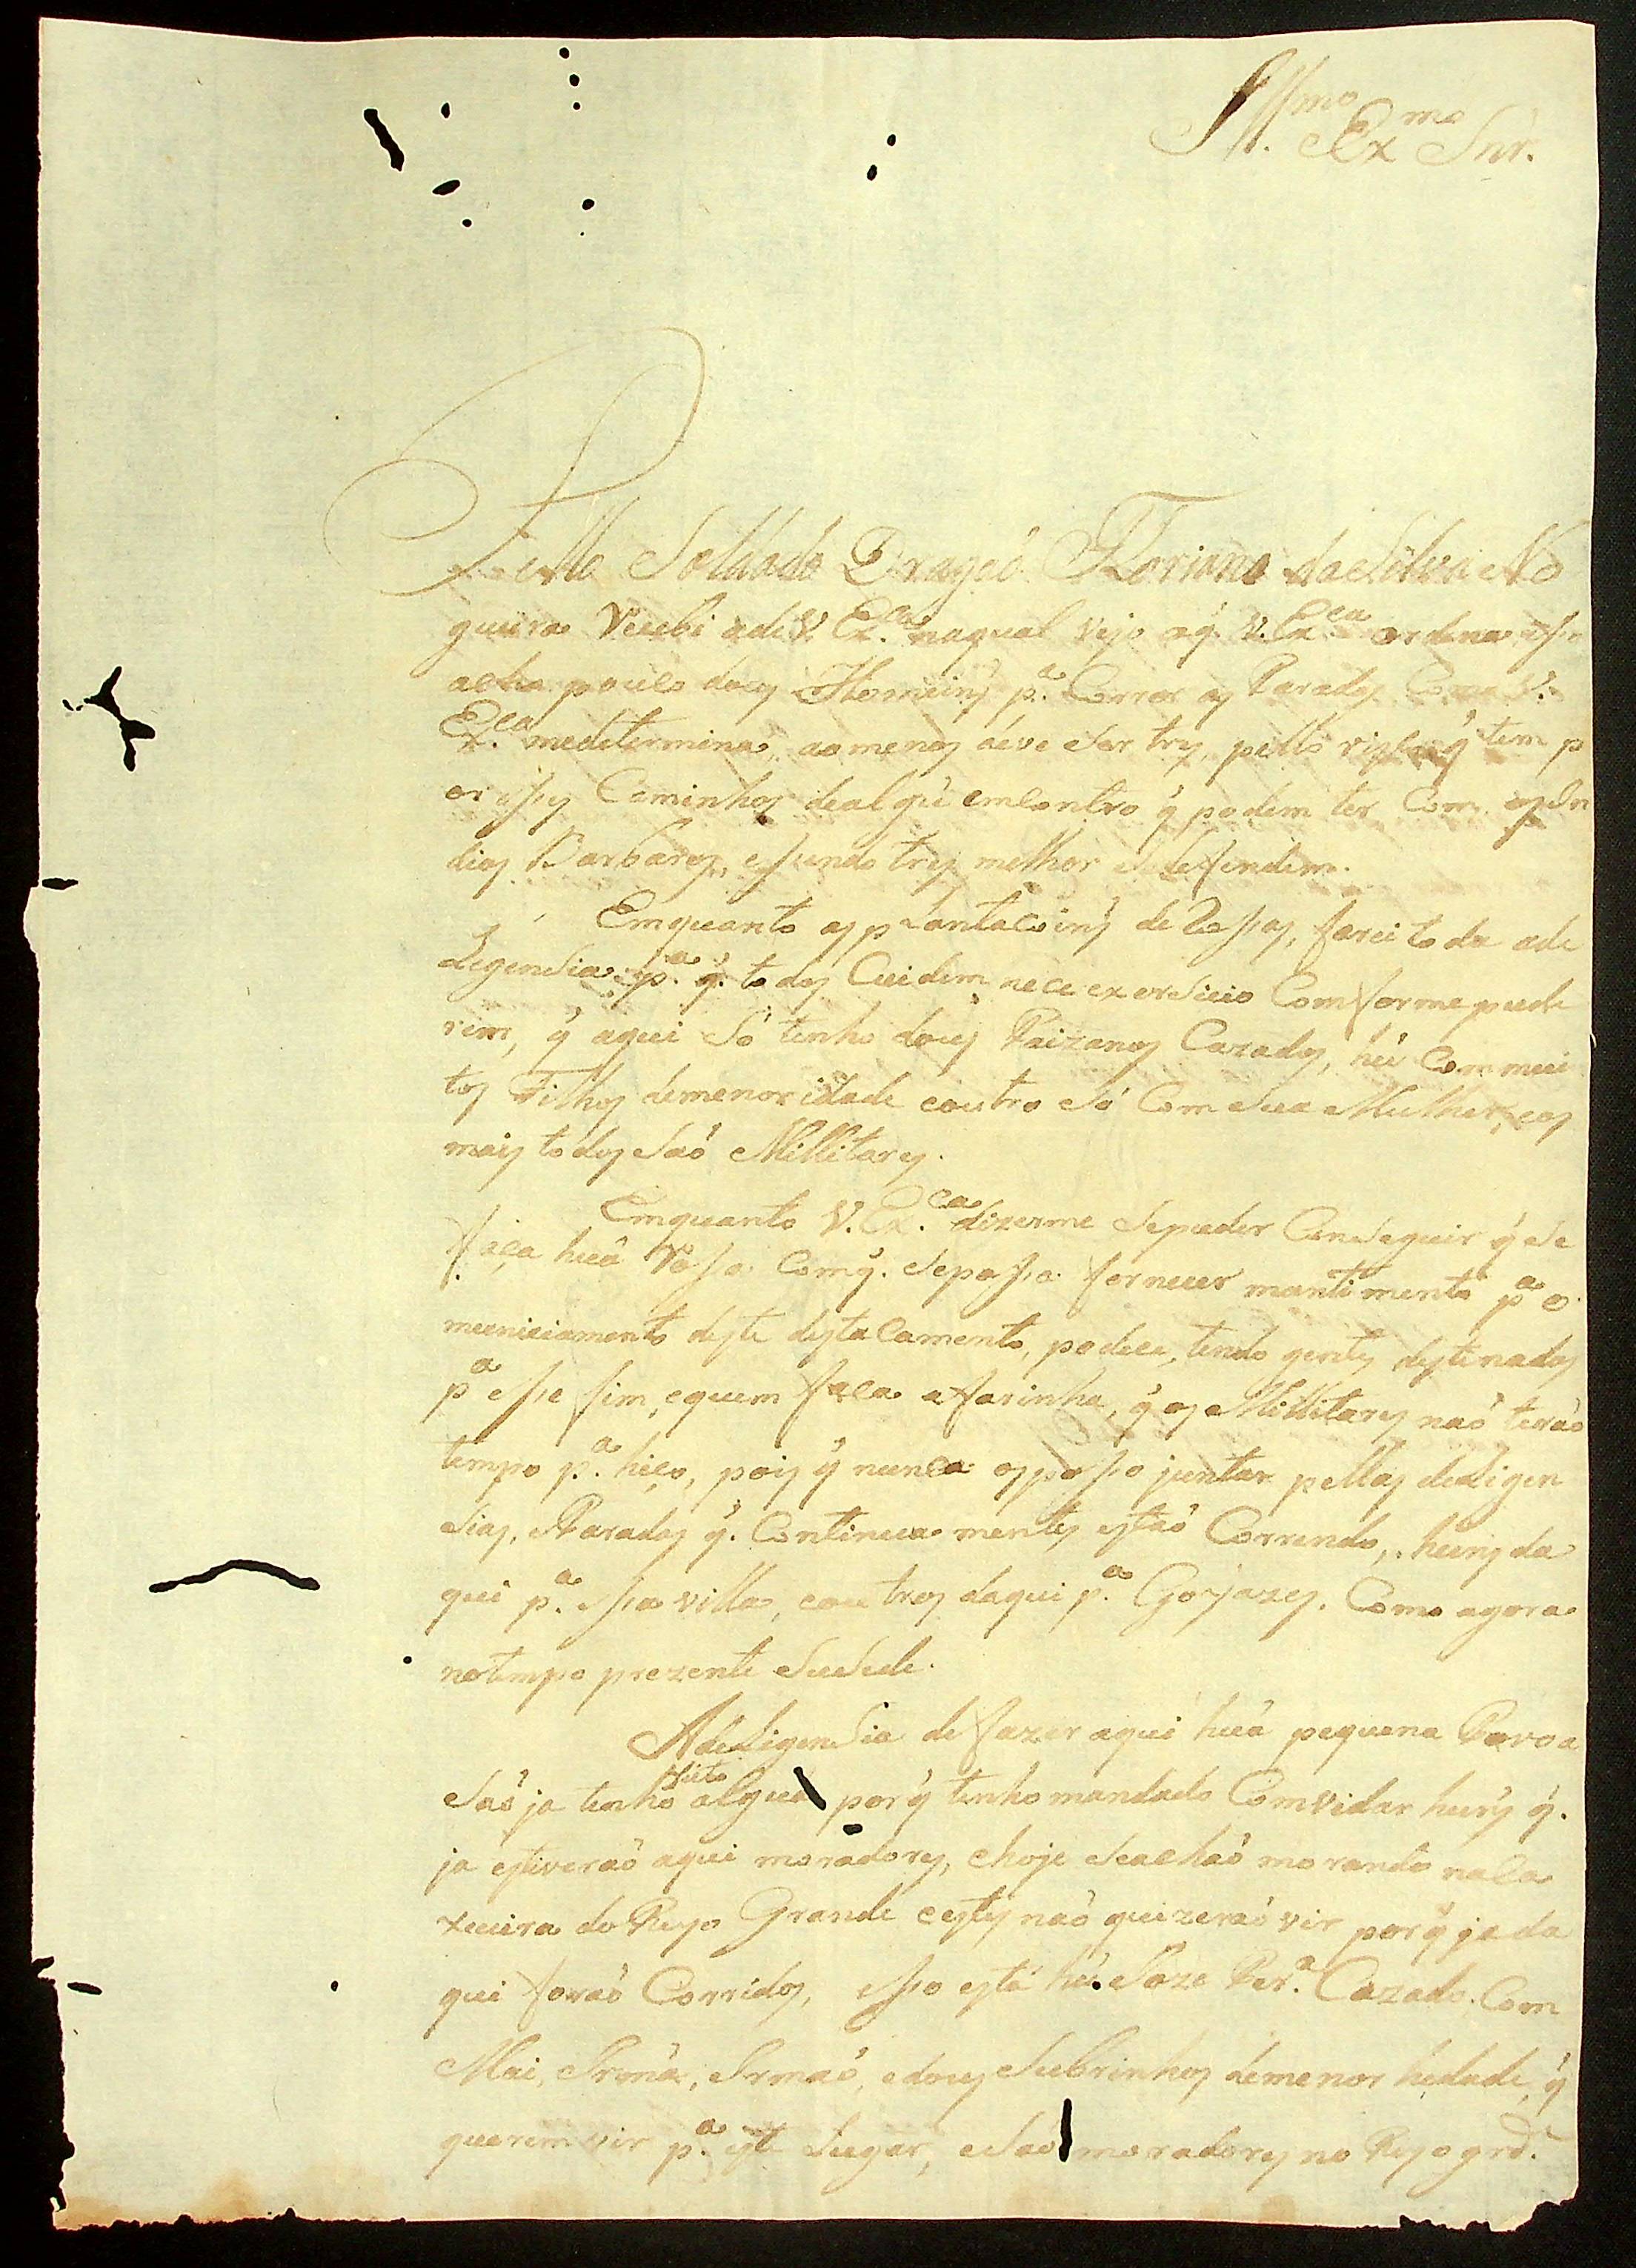 Illmo. Exmo Snr.
Pello Soldado Dragaõ Floriano da Silva No
gueira recebi a de V. Exca. na qual vejo o q̃. V. Exca ordena e se
acha pouco dous Homeins pa. Correr as Paradas Como V.
Exca. me detremina, ao menos deve ser tres, pello risco q̃ tem p
or essas Caminhos de algũ emcontro q̃ podem ter Com os In
dios Barbaros, e sendo tres melhor se defendem.
Emquanto as plantacoins de Rossas, farei toda a de
Legensia pa. q̃. todos Cuidem nece exersicio Comforme pude
rem, q̃ aqui Só tenho dous Paizanos Cazados, hũ Com mui
tos Filhos de menor idade e outro Só Com Sua Mulher, e os
mais todos Saõ Millitares.
Emquanto V. Exca. dizerme Se puder Conseguir q̃ Se
faça huã Rossa Com q̃. Se possa fornecer mantimento pa o
municiamento deste destacamento, podece, tendo gentes destinadas
pa esse fim, e quem faca a farinha, q̃ os Millitares naõ teraõ
tempo pa. hiço, pois q̃ nunca os posso juntar pellas deLigen
sias, e Paradas q̃. Continua mentes estaõ Correndo, huns da
qui pa. essa villa, e outros daqui pa. Goyazes. Como agora
no tempo prezente Susede.
A deLigensia de fazer aqui huã pequena Povoa
saõ ja tenho feito algua por q̃ tenho mandado Comvidar huns q̃.
ja estiveraõ aqui moradores, e hoje Se achaõ morando na Ca
xueira do Ryo Grande e estes naõ quizeraõ vir por q̃ ja da
qui foraõ Corridos, e so está hũ Joze Pera. Cazado. Com
Mai, Irmã, Irmaõ, e dous Subrinhos de menor hedade, q̃
querem vir pa. este Lugar, e Saõ moradores no Ryo grde.